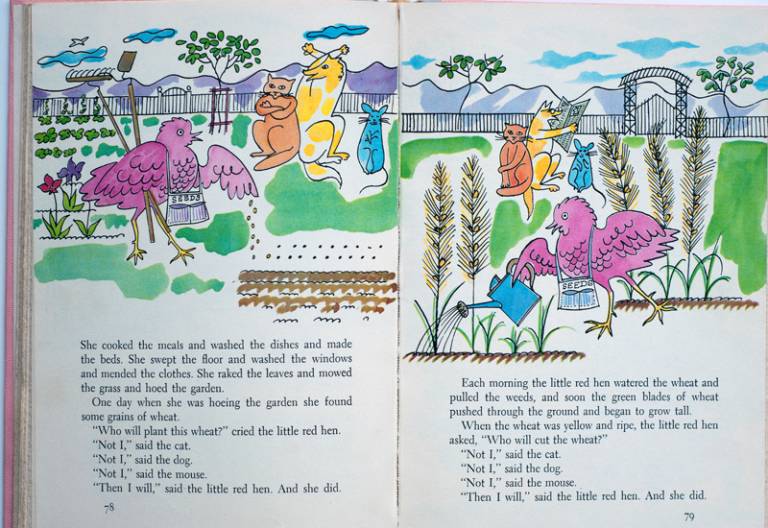 SEEDS
She cooked the meals and washed the dishes and made
the beds. She swept the floor and washed the windows
and mended the clothes. She raked the leaves and mowed
the grass and hoed the garden.
One day when she was hoeing the garden she found
some grains of wheat.
"Who will plant this wheat?" cried the little red hen.
"Not I," said the cat.
"Not I," said the dog.
"Not I," said the mouse.
"Then I will," said the little red hen. And she did.
78
SEEDS
Each morning the little red hen watered the wheat and
pulled the weeds, and soon the green blades of wheat
pushed through the ground and began to grow tall.
When the wheat was yellow and ripe, the little red hen
asked, "Who will cut the wheat?"
"Not I," said the cat.
"Not I," said the dog.
"Not I," said the mouse.
"Then I will," said the little red hen. And she did.
79